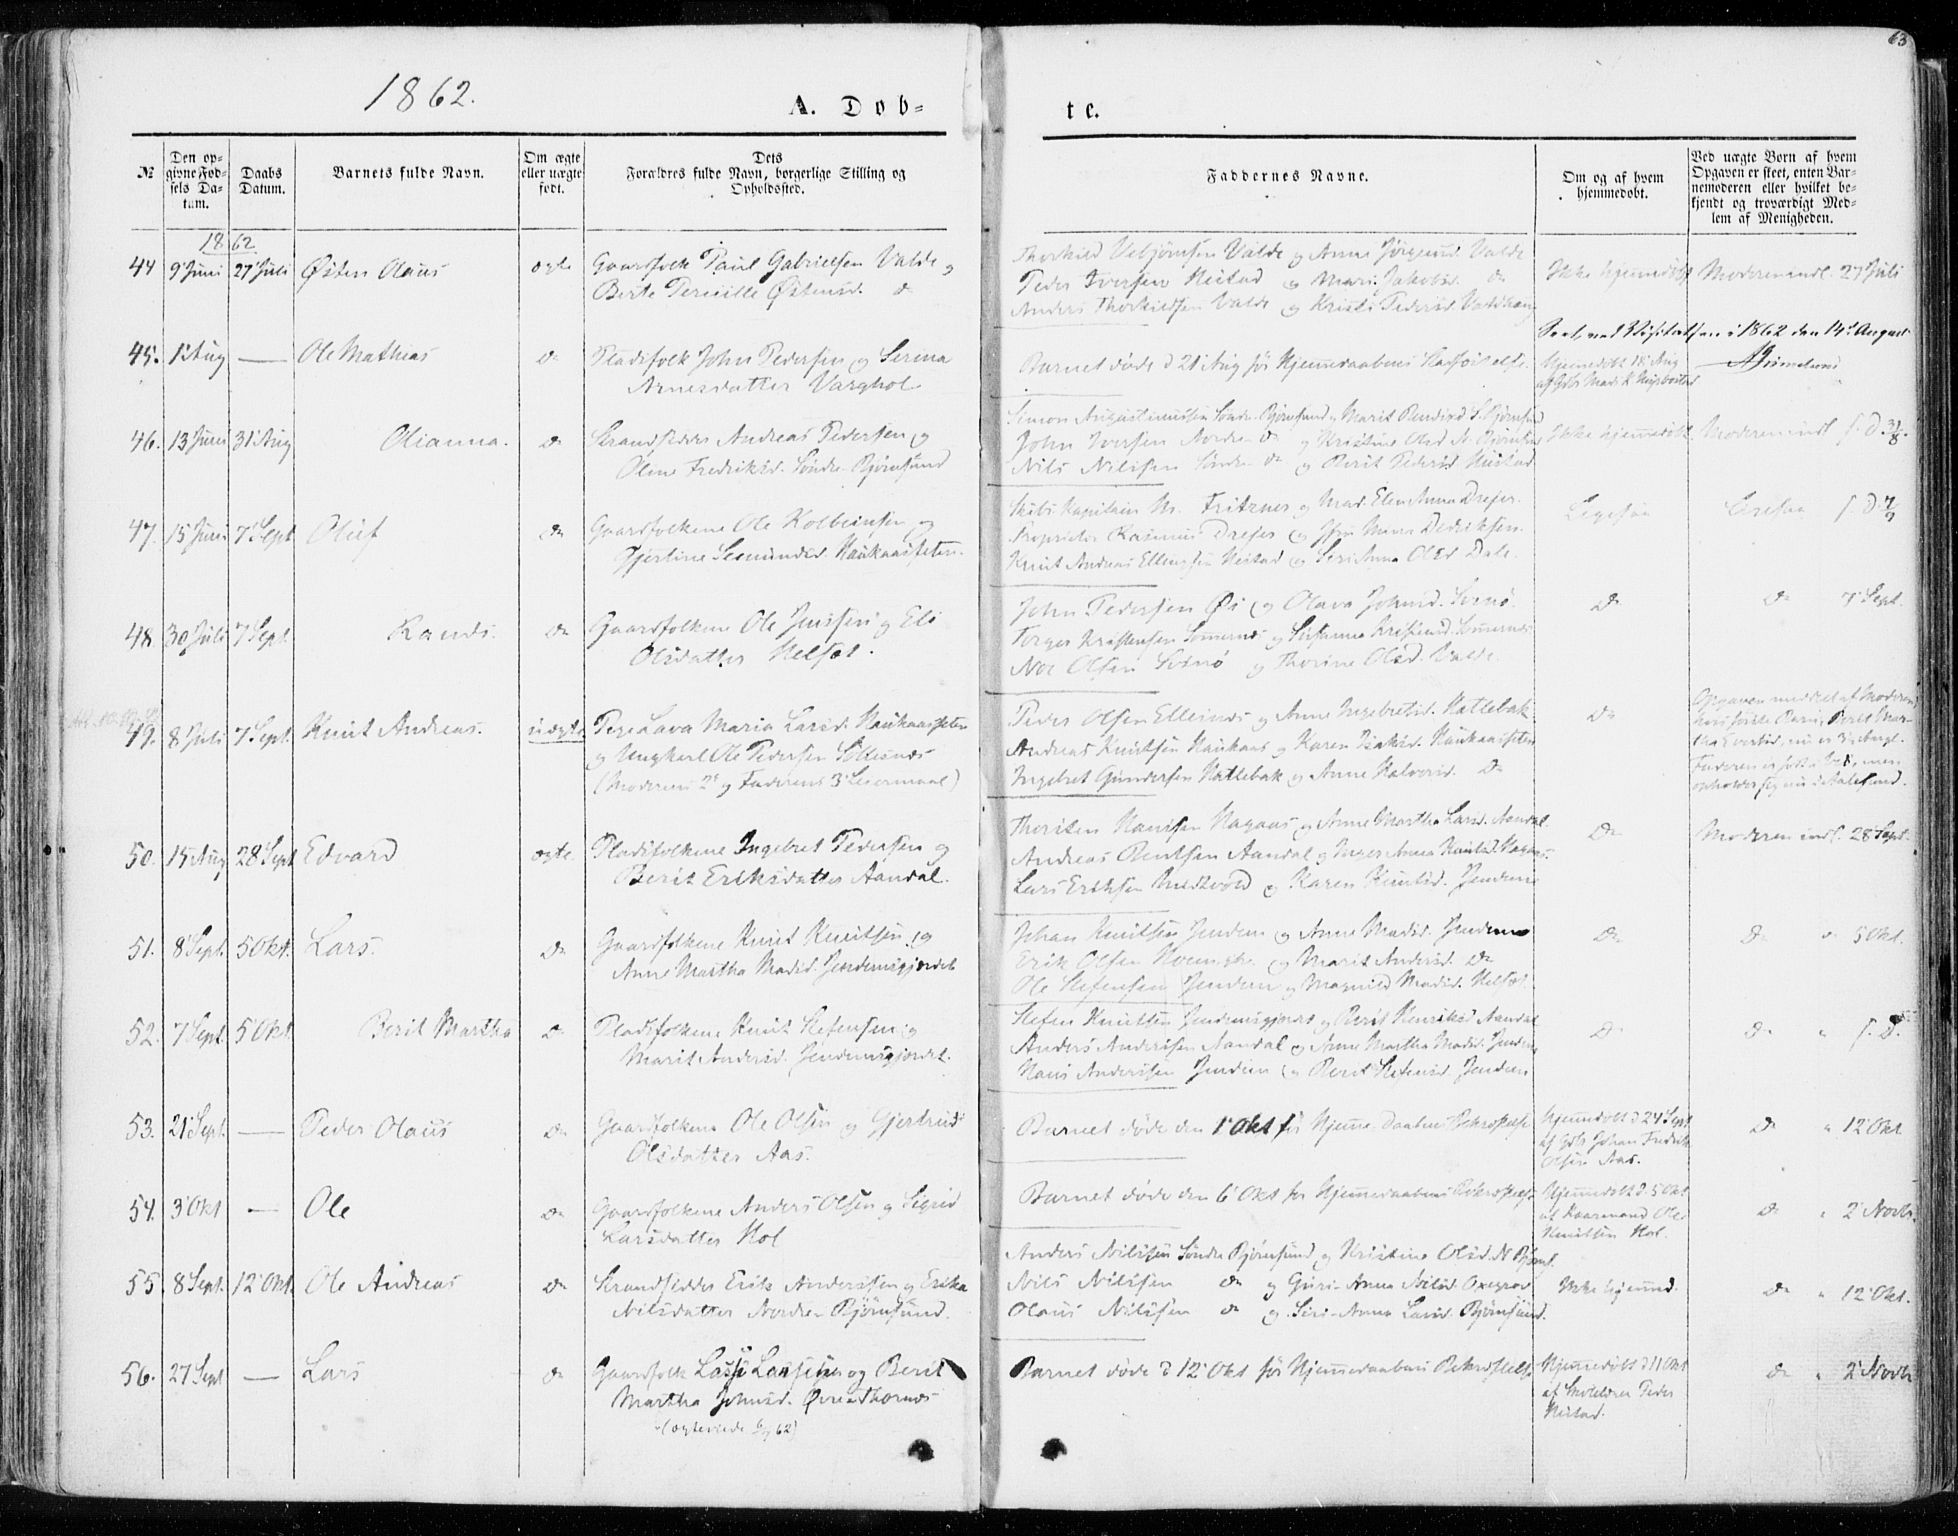 63
1862.
A. Døb-
te.
№
Den op-
givne Fød-
sels Da-
tum.
Daabs
Datum.
Barnets fulde Navn.
Om ægte
eller uægte
født.
Dets
Forældres fulde Navn, borgerlige Stilling og
Opholdssted.
Faddernes Navne.
Om og af hvem
hjemmedøbt.
Ved uægte Børn af hvem
Opgaven er skeet, enten Bar-
nemoderen eller hvilket be-
kjendt og troværdigt Med-
lem af Menigheden.
1862
44 9 Juni 27 Juli Østen Olaus ægte Gaardfolk Paul Gabrielsen Valde og
Berte Pernille Østensd. do
Thorkild Vebjørnsen Valde og Anne Jørgensd. Valde
Peder Iversen Hustad og Mari Jakobsd. do
Anders Thorkildsen Valde og Kristi Pedersd.
Ikke hjemmedøbt Moderen indl. 27 Juli
Seet ved Visitatsen i 1862 den 14d August
45. 1 Aug — Ole Mathias do Pladsfolk John Pedersen og Serina
Arnesdatter Varghol
Barnet døde d 21 Aug før Hjemmedaabens
Hjemmedøbt 18 Aug
46. 13 Juni 31 Aug Olianna. do Strandsidder Andreas Pedersen og
Oline Fredriksd. Søndre Bjørnsund
Simon Augustinussen Søndre Bjørnsund og Marit Bendixd. S. Bjørnsund
John Iversen Nordre do og Kristine Olsd. N. Bjørnsund
Nils Nilssen Søndre do og Berit Pedersd. Hustad
Ikke hjemmedøbt Moderen indl s. D. 31/8.
47. 15 Juni 7 Sept Oluf do Gaardfolkene Ole Kolbeinsen og
Gjertine Haukaassæten.
Skibs Kapitain Fritzner og Mad. Elen Anna Drejer.
Proprietær Rasmus Drejer og
Knut Andreas Ellingsen Hustad og Olsd Dale.
Ligesaa Ligesaa s. D. 7/9
48. 30 Juli 7 Sept. Rands. do Gaardfolkene Ole Jenssen og Eli
Olsdatter Helset.
John Pedersen Øi og Olava Johnsd.
Torger Kristensen og Susanne Kristensd.
Noe Olsen og Thorine Olsd. Valde.
do do 7 Sept.
49. 8 Juli 7 Sept. Knut Andreas. uægte Pige Lava Maria Larsd. Haukaassæten
og Ungkarl Ole Pedersen
(Moderens 2d og Faderens 3d Leiermaal)
Peder Olsen og Anne Ingebretsd. Hatlebak
Andreas Knutsen Haukaas og Karen Isaksd. Haukaassæten
Ingebret Gundersen Hatlebak og Anne Halvorsd. do
do
Opgaven meddelt af Moderen,
opholder sig nu i Aalesund.
50. 15 Aug 28 Sept Edvard ægte. Pladsfolkene Ingebret Pedersen og
Berit Eriksdatter Aandal.
Thorsten Hansen Hagaas og Anne Martha Larsd. Aandal
Andreas Bentsen Aandal og Inger Anna Knutsd. Hagaas.
Lars Eriksen og Karen Knutsd. Jendem
do Moderen indl. 28 Sept.
51. 8 Sept. 5 Okt. Lars. do Gaardfolkene Knut Knutsen og
Anne Martha Madsd. Jendemsgjerdet
Johan Knutsen Jendem og Anne Madsd. Jendem
Erik Olsen og Marit Andersd. do
Ole Stefensen Jendem og Magnild Madsd. Helset.
do do " 5 Okt.
52. 7 Sept. 5 Okt Berit Martha do Pladsfolkene Knut Stefensen og
Marit Andersd. Jendemsgjerdet.
Stefen Knutsen Jendemsgjerdet og Berit Henriksd Aandal
Anders Andersen Aandal og Anne Martha Madsd. Jendem
Hans Andersen Jendem og Berit Stefensd. Jendem
do do " s. D.
53. 21 Sept. — Peder Olaus do Gaardfolkene Ole Olsen og Gjertrud
Olsdatter Aas.
Barnet døde den 1d Okt før Hjemmedaabens Bekræftelse
Hjemmedøbt d 24 Sept.
af Gbr. Johan Fredrik
Olsen Aas.
do " 12 Okt
54. 3 Okt — Ole do Gaardfolkene Anders Olsen og Sigrid
Larsdatter Hol
Barnet døde den 6 Okt før Hjemmedaabens Bekræftelse.
Hjemmedøbt d. 5 Okt
af Kaarmand Ole
Knutsen Hol.
do " 2 Novb.
55. 8 Sept. 12 Okt. Ole Andreas do Strandsidder Erik Andersen og Erika
Nilsdatter Nordre Bjørnsund.
Anders Nilssen Søndre Bjørnsund og Kristine Olsd. N Bjørns.
Nils Nilssen do og Guri Anna Nilsd.
Olaus Nilssen do og Siri Anna Larsd. Bjørnsund.
Ikke hjemmed. do " 12 Okt.
56. 27 Sept — Lars do Gaardfolk Lasse Larssen og Berit
Martha Johnsd. Øvre Thornes
(ægteviede 6/7 62)
Barnet døde d 12 Okt før Hjemmedaabens Bekræftelse
Hjemmedøbt d 11 Okt
af Skolelærer Peder
Hustad.
do " 2 Novb